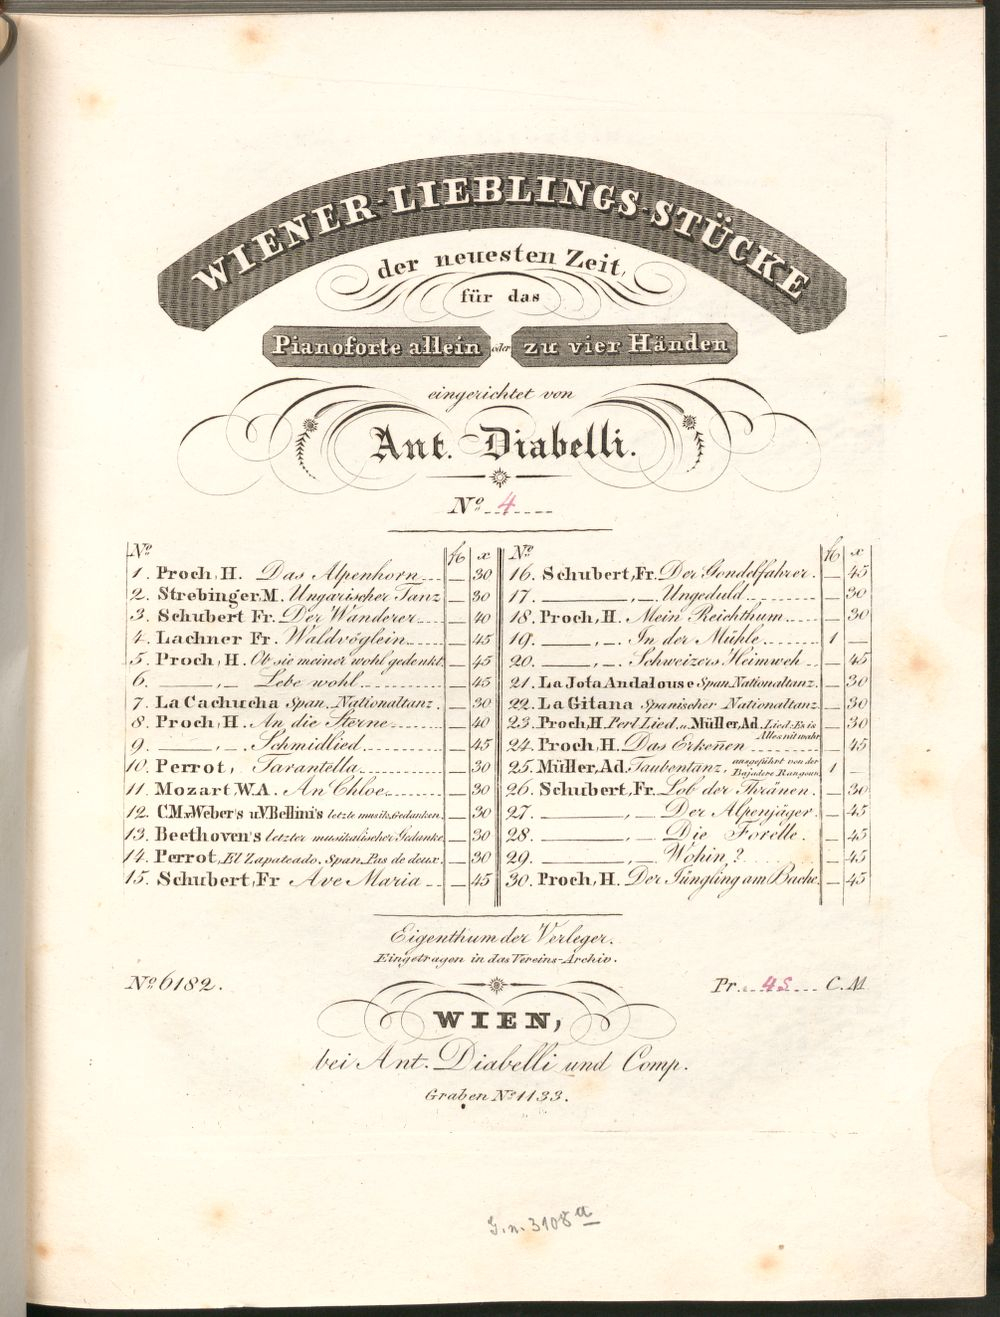 WIENER-LIEBLINGS-STÜCKE
der neuesten Zeit,
für das
Pianoforte allein oder zu vier Händen
eingerichtet von
Ant. Diabelli.
No. 4
No. fl x
1. Proch, H. Das Alpenhorn — 30
2. Strebinger, M. Ungarischer Tanz — 30
3. Schubert Fr. Der Wanderer — 40
4. Lachner Fr. Waldvöglein — 45
5. Proch, H. Ob sie meiner wohl gedenkt — 45
6. ——,— Lebe wohl — 45
7. La Cachucha Span. Nationaltanz. — 30
8. Proch, H. An die Sterne — 40
9. ——,— Schmidlied — 45
10. Perrot, Tarantella — 30
11. Mozart, W.A. An Chloe — 30
12. C.M.v.Weber's u.V.Bellini's letzte musik. Gedanken. — 30
13. Beethoven's letzter musikalischer Gedanke — 30
14. Perrot, El Zapateado. Span. Pas de deux. — 30
15. Schubert, Fr Ave Maria — 45
No. fl x
16. Schubert, Fr. Der Gondelfahrer. — 45
17. ——,— Ungeduld — 30
18. Proch, H. Mein Reichthum — 30
19. ——,— In der Mühle 1 —
20. ——,— Schweizers Heimweh — 45
21. La Jota Andalouse Span. Nationaltanz. — 30
22. La Gitana Spanischer Nationaltanz. — 30
23. Proch, H. Perl Lied. u. Müller, Ad. Lied: Es is Alles nit wahr — 30
24. Proch, H. Das Erkeñen — 45
25. Müller, Ad. Taubentanz, ausgeführt von der Bajadere Rangoun 1 —
26. Schubert, Fr. Lob der Thränen. — 30
27. ——,— Der Alpenjäger. — 45
28. ——,— Die Forelle. — 45
29. ——,— Wohin? — 45
30. Proch, H. Der Jüngling am Bache. — 45
Eigenthum der Verleger.
Eingetragen in das Vereins-Archiv.
No. 6182. Pr. 45 C.M
WIEN,
bei Ant. Diabelli und Comp.
Graben No. 1133.
J.n. 3108 a